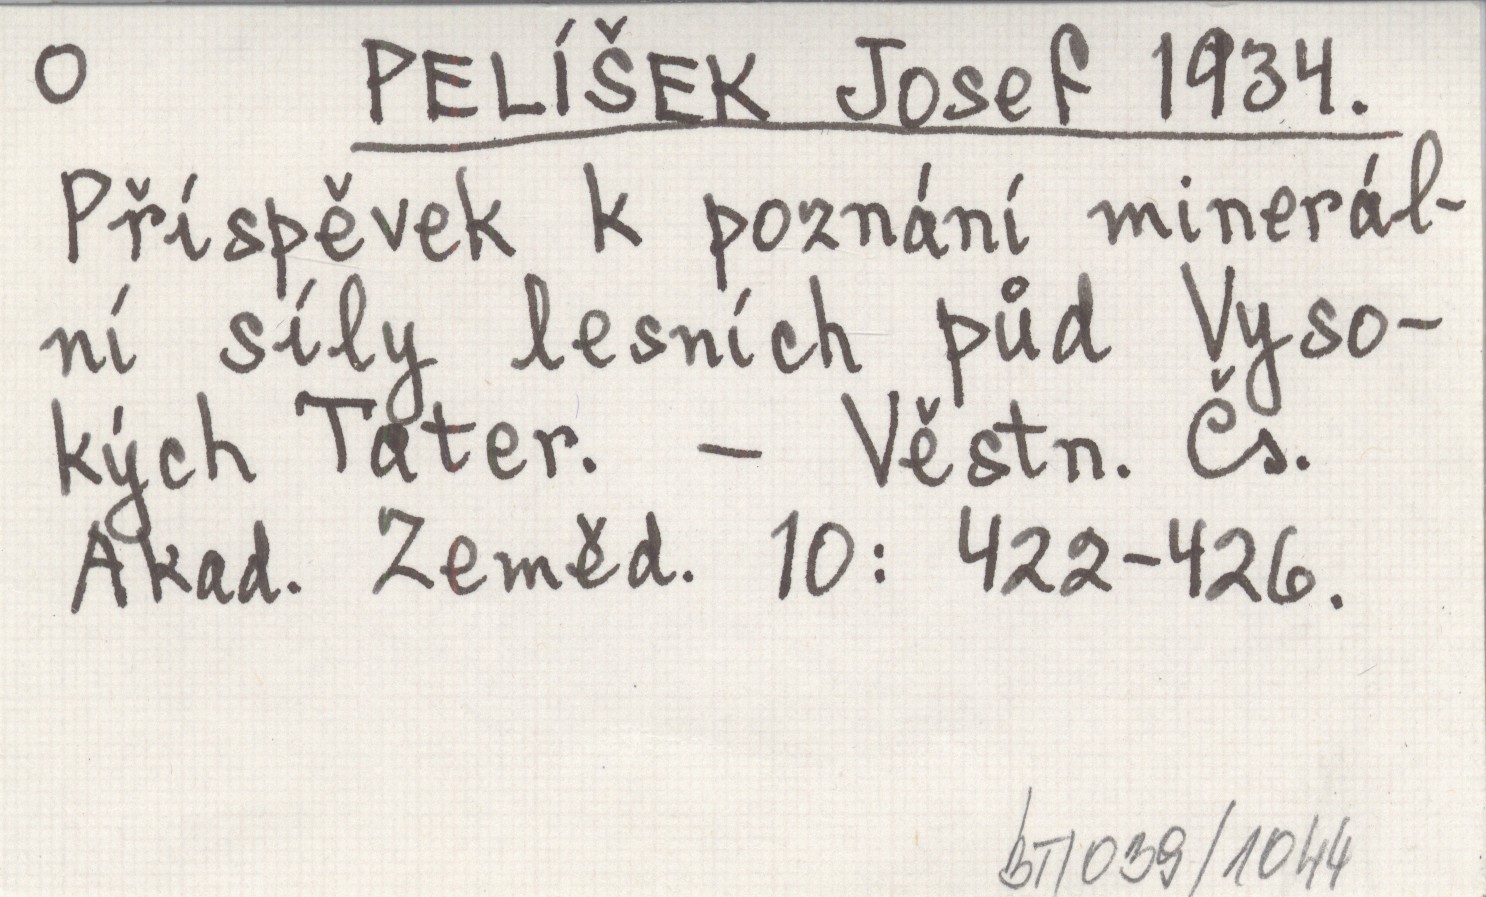 O PELÍŠEK Josef 1934.
Příspěvek k poznání minerál-
ní síly lesních půd Vyso-
kých Tater. – Věstn. Čs.
Akad. Zeměd. 10: 422-426.
BT/039/1044